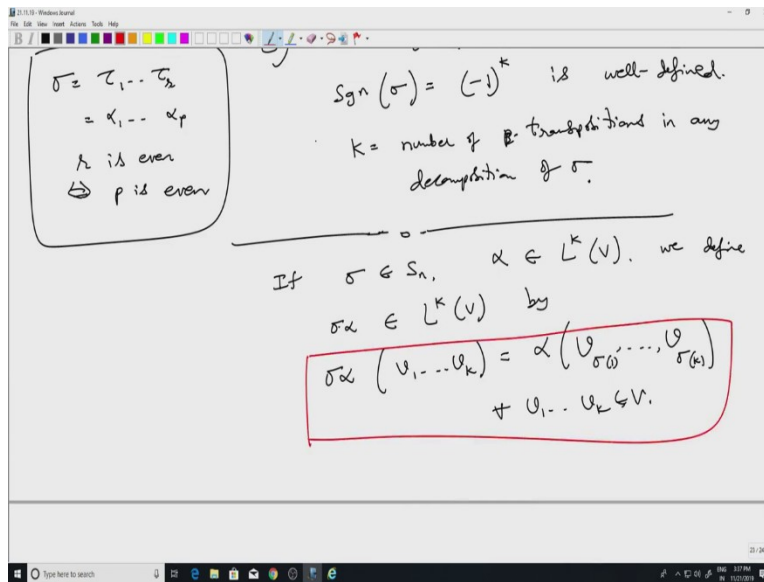 21.11.19 - Windows Journal
File Edit View Insert Actions Tools Help
σ = τ₁ ... τᵣ
= α₁ ... αₚ
r is even
⇔ p is even
Sgn (σ) = (-1)ᵏ is well-defined.
k = number of transpositions in any
decomposition of σ.
If σ ∈ Sₙ, α ∈ Lᵏ(V). we define
σα ∈ Lᵏ(V) by
σα (v₁, ... vₖ) = α (v_σ(1), ..., v_σ(k))
∀ v₁ ... vₖ ∈ V.
23 / 24
Type here to search
ENG 3:37 PM
IN 11/21/2019